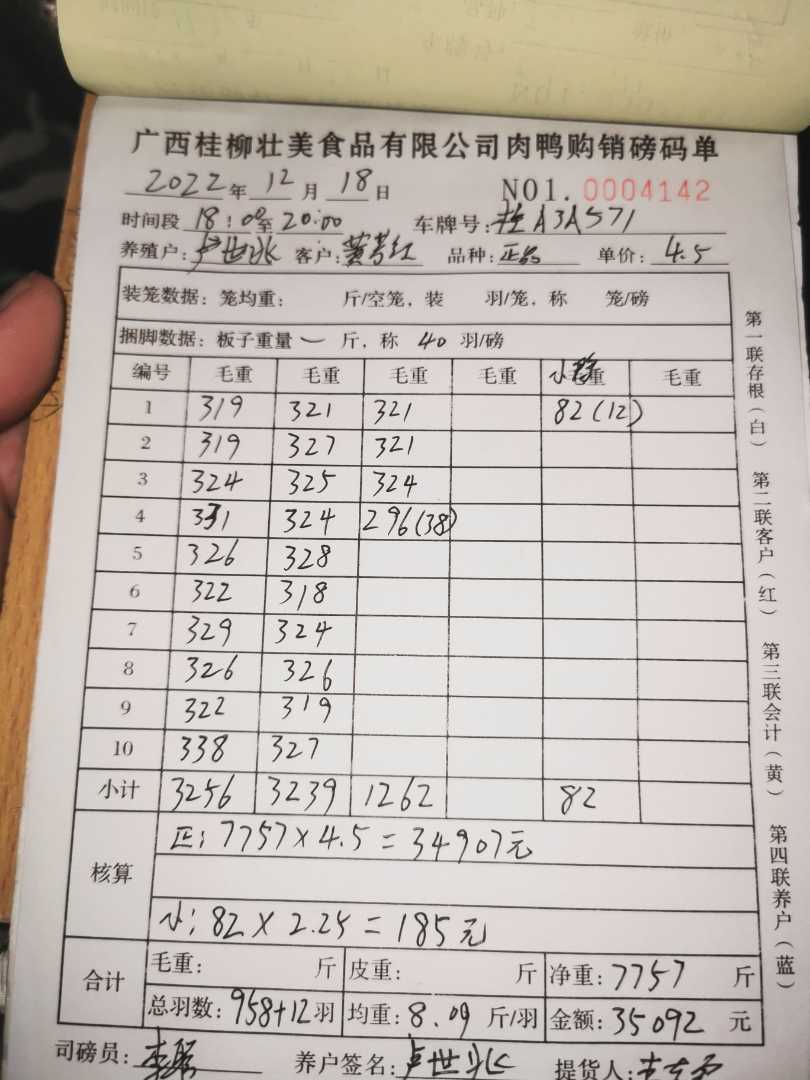 广西桂柳壮美食品有限公司肉鸭购销磅码单
2022年 12月 18日 NO1. 0004142
时间段 18:00至 20:00 车牌号:桂A3A571
养殖户:卢世兆 客户:黄芳红 品种:正品 单价:4.5
装笼数据:笼均重: 斤/空笼,装 羽/笼,称 笼/磅
捆脚数据:板子重量 一 斤,称 40 羽/磅
编号 毛重 毛重 毛重 毛重 小鸭重 毛重
1 319 321 321 82(12)
2 319 327 321
3 324 325 324
4 331 324 296(38)
5 326 328
6 322 318
7 329 324
8 326 326
9 322 319
10 338 327
小计 3256 3239 1262 82
核算
正:7757×4.5=34907元
小:82×2.25=185元
合计
毛重: 斤 皮重: 斤 净重:7757 斤
总羽数:958+12羽 均重:8.09 斤/羽 金额:35092 元
司磅员: 养户签名:卢世兆 提货人:
第一联存根(白)
第二联客户(红)
第三联会计(黄)
第四联养户(蓝)